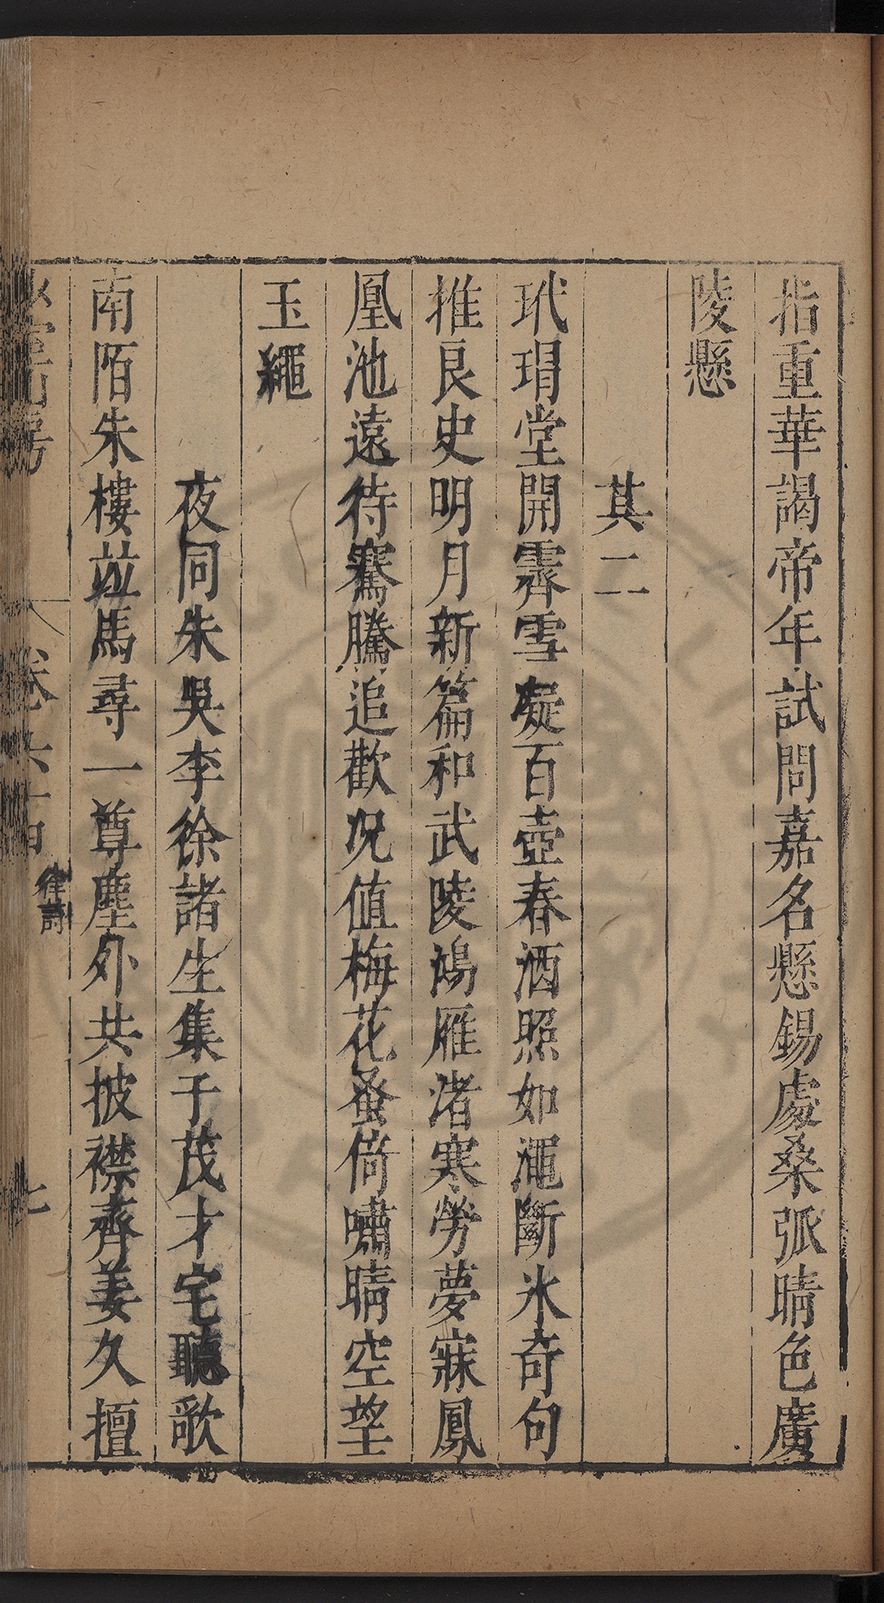 指重華謁帝年試問嘉名懸錫處桑弧晴色廣
陵懸
其二
玳瑁堂開霽雪凝百壺春酒照如澠斷氷奇句
推良史明月新篇和武陵鴻雁渚寒勞夢寐鳳
凰池遠待騫騰追歡况值梅花發倚嘯晴空望
玉繩
夜同朱吳李徐諸生集于茂才宅聽歌
南陌朱樓並馬尋一尊塵外共披襟齊姜久擅
律詩
七